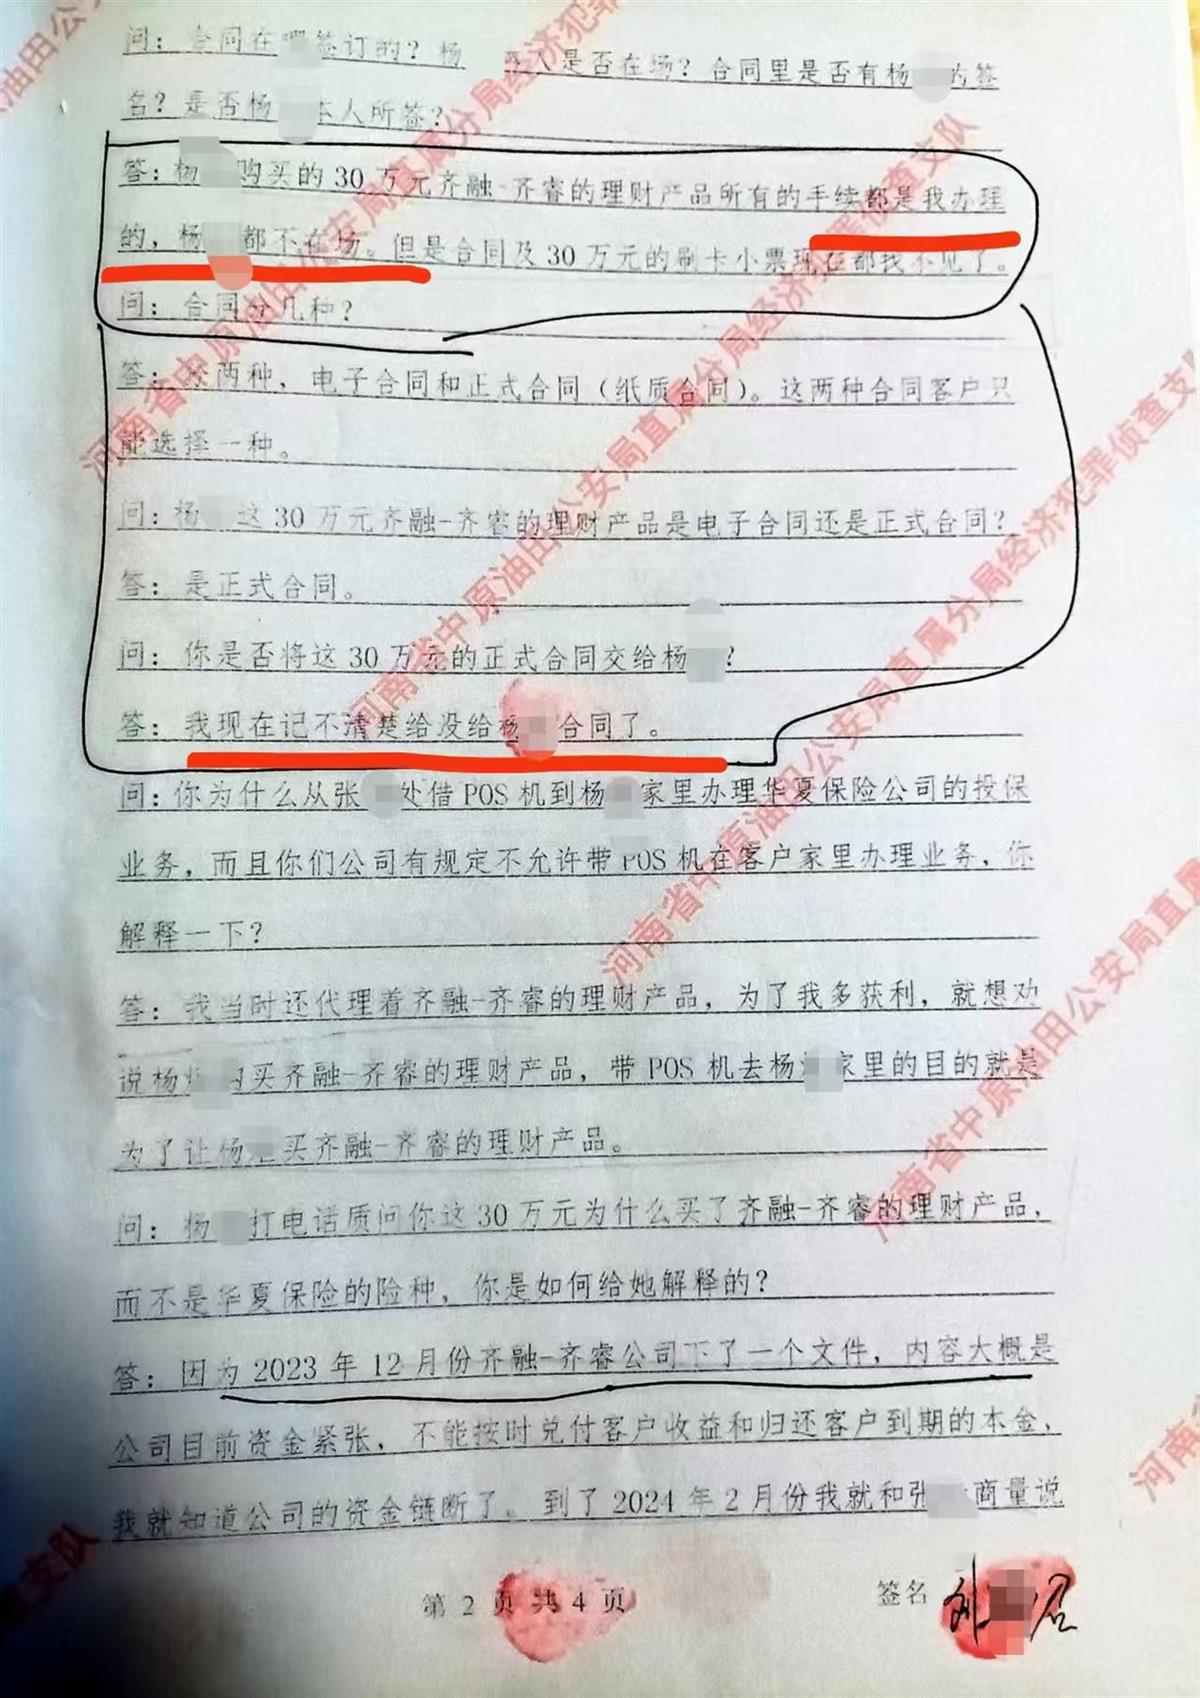 问：合同在 签订的？杨 人是否在场？合同里是否有杨 的签
名？是否杨 本人所签？
答：杨 购买的30万元齐融-齐睿的理财产品所有的手续都是我办理
的，杨 都不在场。但是合同及30万元的刷卡小票现在都找不见了。
问：合同分几种？
答：分两种，电子合同和正式合同（纸质合同）。这两种合同客户只
能选择一种。
问：杨 这30万元齐融-齐睿的理财产品是电子合同还是正式合同？
答：是正式合同。
问：你是否将这30万元的正式合同交给杨 ？
答：我现在记不清楚给没给杨 合同了。
问：你为什么从张 处借POS机到杨 家里办理华夏保险公司的投保
业务，而且你们公司有规定不允许带POS机在客户家里办理业务，你
解释一下？
答：我当时还代理着齐融-齐睿的理财产品，为了我多获利，就想劝
说杨 购买齐融-齐睿的理财产品，带POS机去杨 家里的目的就是
为了让杨 买齐融-齐睿的理财产品。
问：杨 打电话质问你这30万元为什么买了齐融-齐睿的理财产品，
而不是华夏保险的险种，你是如何给她解释的？
答：因为2023年12月份齐融-齐睿公司下了一个文件，内容大概是
公司目前资金紧张，不能按时兑付客户收益和归还客户到期的本金，
我就知道公司的资金链断了。到了2024年2月份我就和张 商量说
第 2 页 共 4 页
签名 刘
河南省中原油田公安局直属分局经济犯罪侦查支队
河南省中原油田公安局直属分局经济犯罪侦查支队
河南省中原油田公安局直属分局经济犯罪侦查支
河南省中原油田公安局直属
河南省
支队